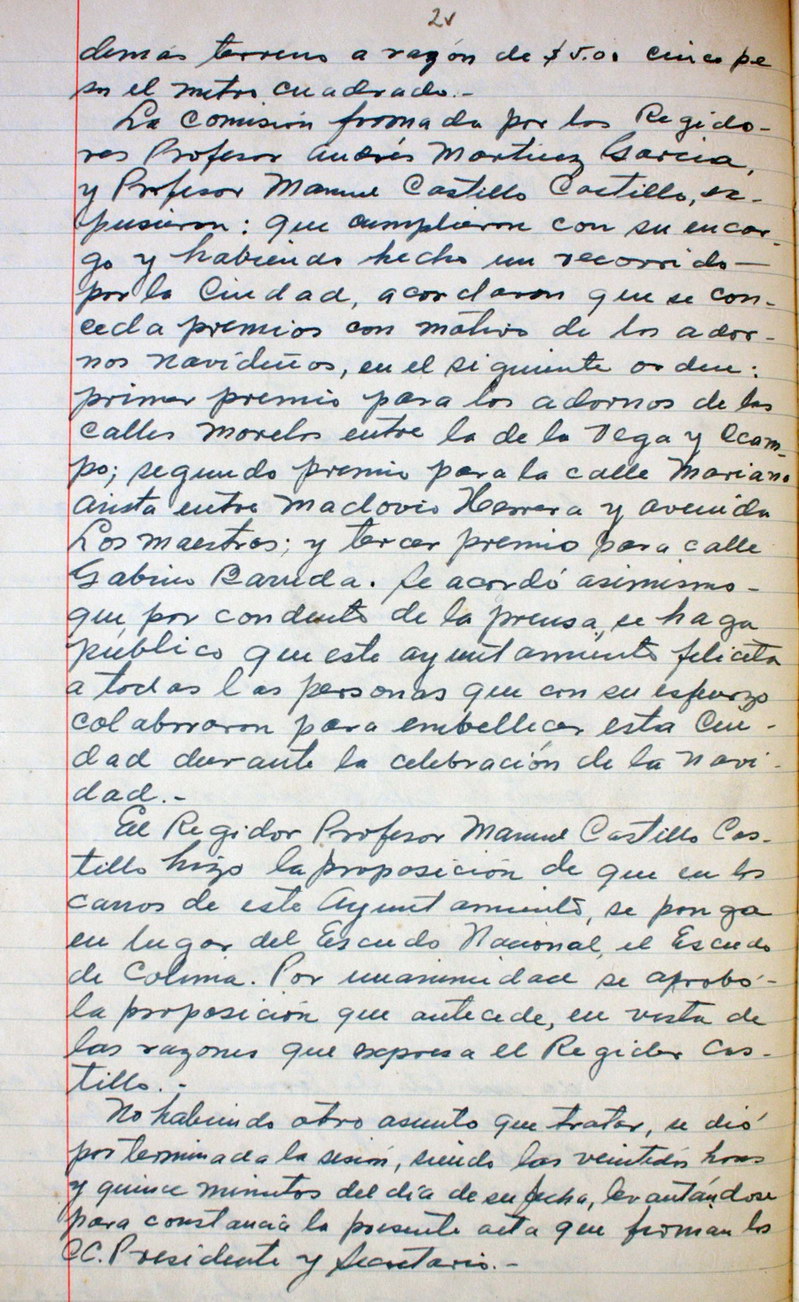 2v
demás terreno a razón de $5.00 cinco pe
so el metro cuadrado.-
La Comisión fromada por los Regido-
res Profesor Andrés Martínez García,
y Profesor Manuel Castillo Castillo, ex-
pusieron: que cumplieron con su encar-
go y habiendo hecho un recorrido—
por la Ciudad, acordaron que se con-
ceda premios con motivo de los ador-
nos navideños, en el siguiente orden:
primer premio para los adornos de las
calles Morelos entre la de la Vega y Ocam-
po; segundo premio para la calle Mariano
Arista entre Maclovio Herrera y avenida
Los Maestros; y tercer premio para calle
Gabino Barreda. Se acordó asimismo-
que por conducto de la prensa, se haga
público que este ayuntamiento felicita
a todas las personas que con su esfuerzo
colaboraron para embellecer esta Ciu-
dad durante la celebración de la Navi-
dad.-
El Regidor Profesor Manuel Castillo Cas-
tillo hizo la proposición de que en los
carros de este Ayuntamiento, se ponga
en lugar del Escudo Nacional, el Escudo
de Colima. Por unanimidad se aprobó-
la proposición que antecede, en vista de
las razones que expresa el Regidor Cas-
tillo.-
No habiendo otro asunto que tratar, se dió
por terminada la sesión, siendo las veintidós horas
y quince minutos del día de su fecha, levantándose
para constancia la presente acta que firman los
CC. Presidente y Secretario.-